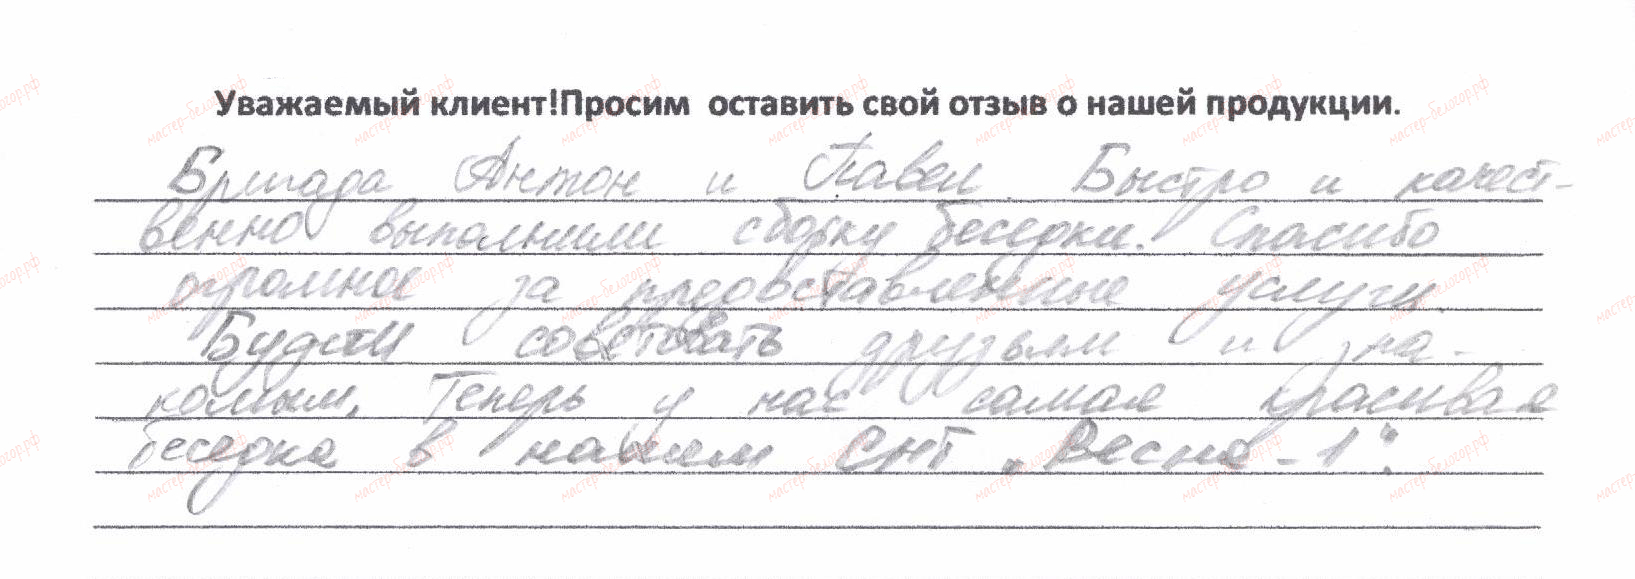 Уважаемый клиент!Просим оставить свой отзыв о нашей продукции.
Бригада Антон и Павел. Быстро и качест-
венно выполнили сборку беседки. Спасибо
огромное за предоставленные услуги.
Будем советовать друзьям и зна-
комым. Теперь у нас самая красивая
беседка в нашем СНТ „Весна-1".
мастер-белогор.рф